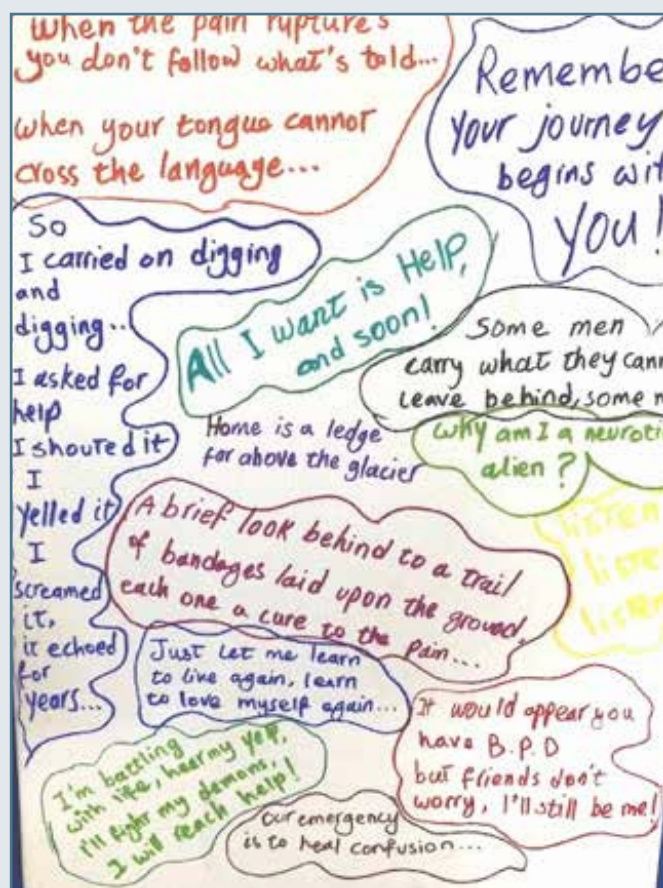 When the pain rupture's
you don't follow what's told...
when your tongue cannot
cross the language...
Remembe
your journey
begins wit
YOU!
So
I carried on digging
and
digging..
I asked for
help
I shouted it
I
yelled it
I
screamed
it,
it echoed
for
years...
All I want is Help,
and soon!
Some men
carry what they cann
leave behind, some m
Home is a ledge
far above the glacier
Why am I a neuroti
alien?
listen
liste
listen
A brief look behind to a trail
of bandages laid upon the ground,
each one a cure to the Pain...
Just let me learn
to live again, learn
to love myself again...
It would appear you
have B.P.D
but friends don't
worry, I'll still be me!
I'm battling
with life, hear my yelp,
I'll fight my demons,
I will reach help!
Our emergency
is to heal confusion...